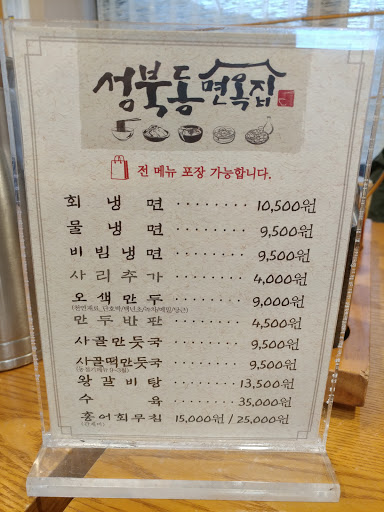 성북동면옥집
전 메뉴 포장 가능합니다.
회 냉 면 ········ 10,500원
물 냉 면 ········ 9,500원
비 빔 냉 면 ········ 9,500원
사 리 추 가 ········ 4,000원
오 색 만 두 ········ 9,000원
만 두 반 판 ········ 4,500원
사골만둣국 ········ 9,500원
사골떡만둣국 ········ 9,500원
왕 갈 비 탕 ········ 13,500원
수 육 ········ 35,000원
홍어회무침 15,000원 / 25,000원